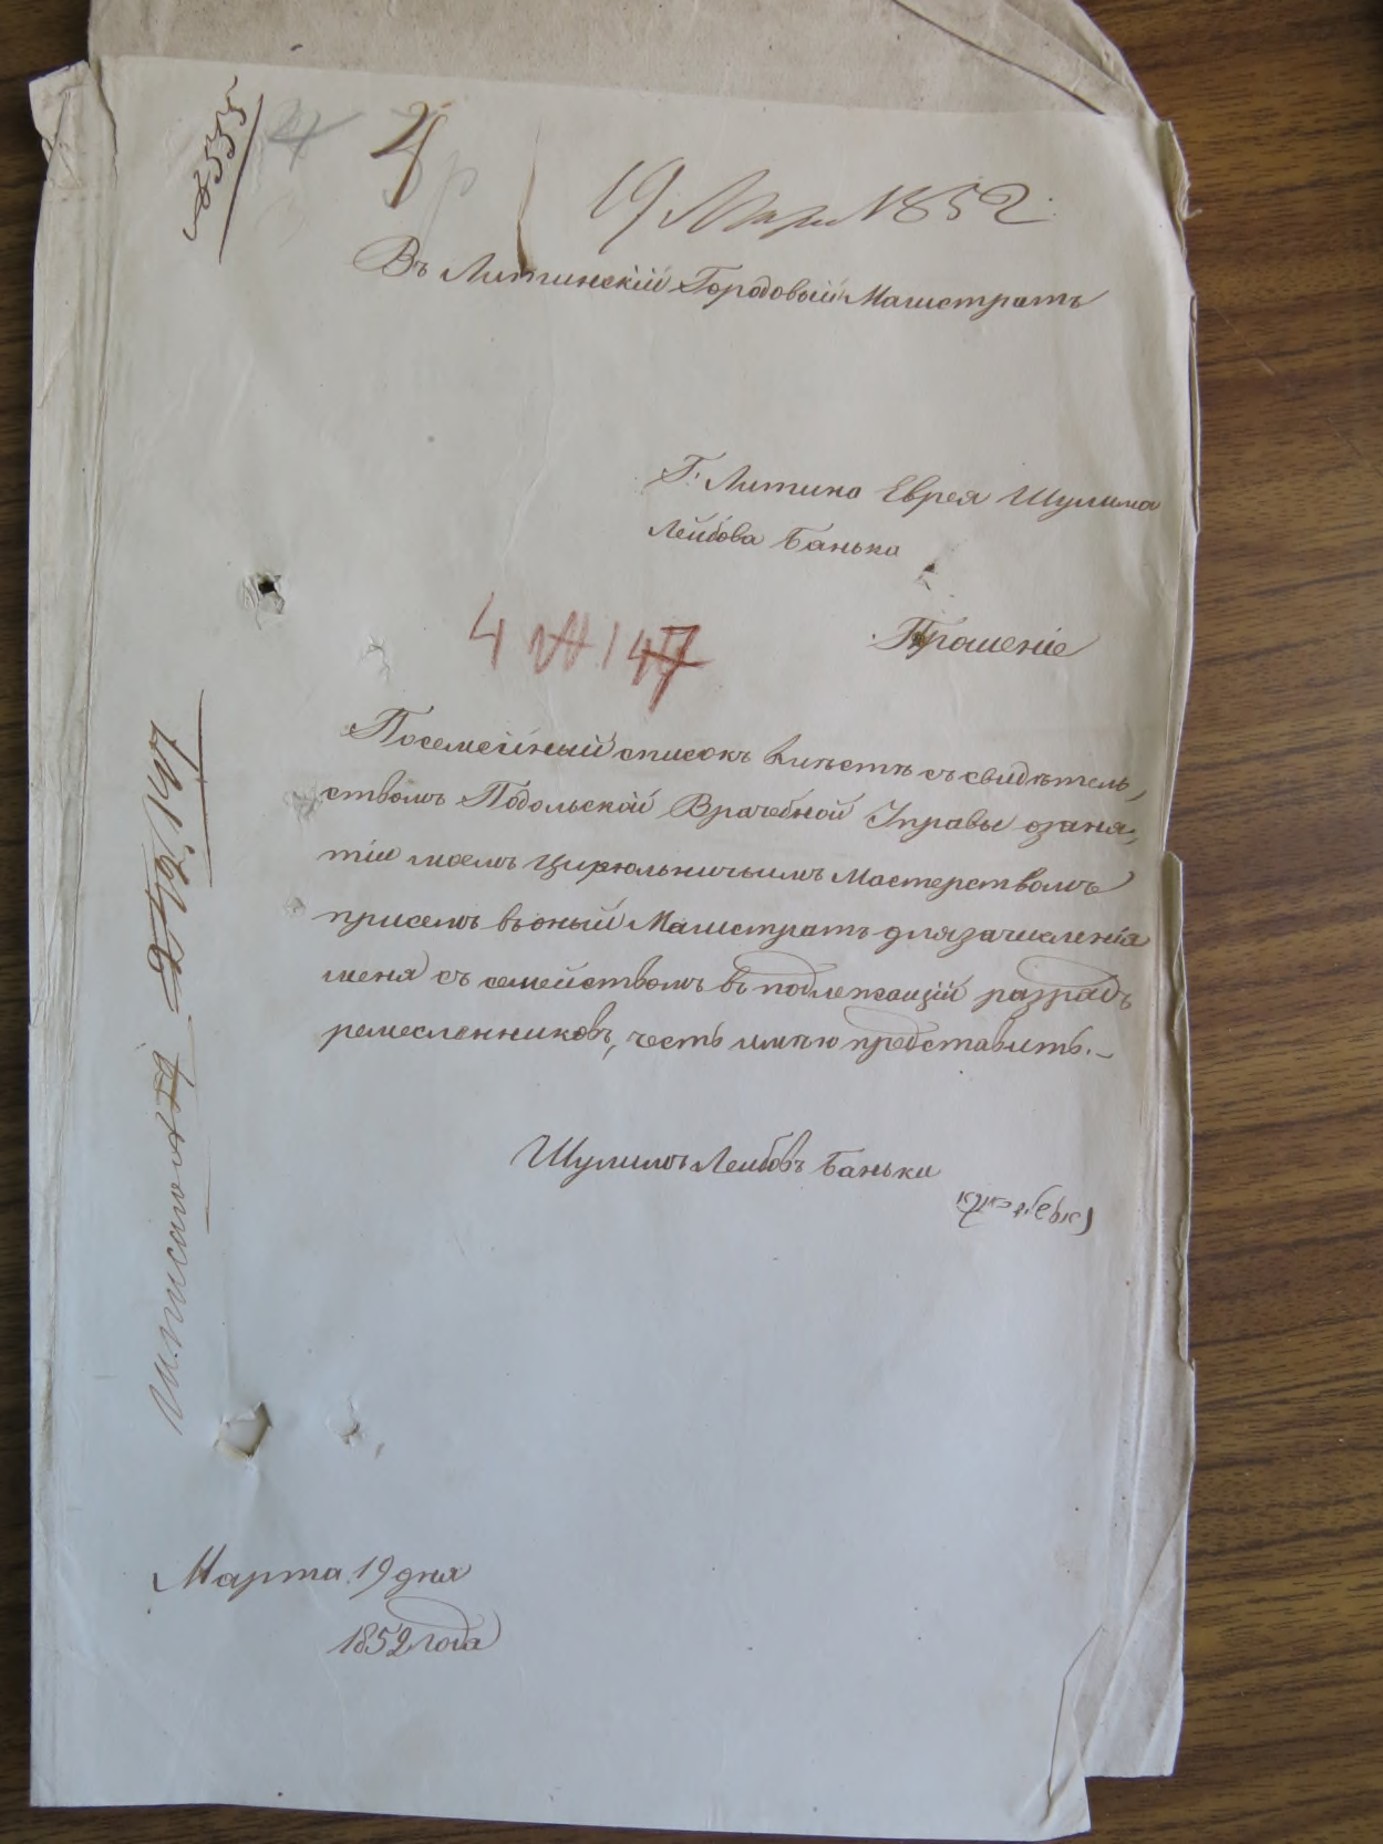 № 535
4
19 Мар. 1852
Въ Литинскій Городовый Магистратъ
Г. Литина Еврея Шулима
Лейбова Банька
Прошеніе
4 № 147
Посемейный списокъ вмѣстѣ съ свидѣтель,
ствомъ Подольскай Врачебной Управы озаня,
тіи моемъ Цирюльничьимъ Мастерствомъ
приселъ въ оный Магистратъ для зачисленія
меня съ семействомъ въ подлежащій разрядъ
ремесленниковъ, честь имѣю представить.
Шулимъ Лейбовъ Банька
Марта 19 дня
1852 года